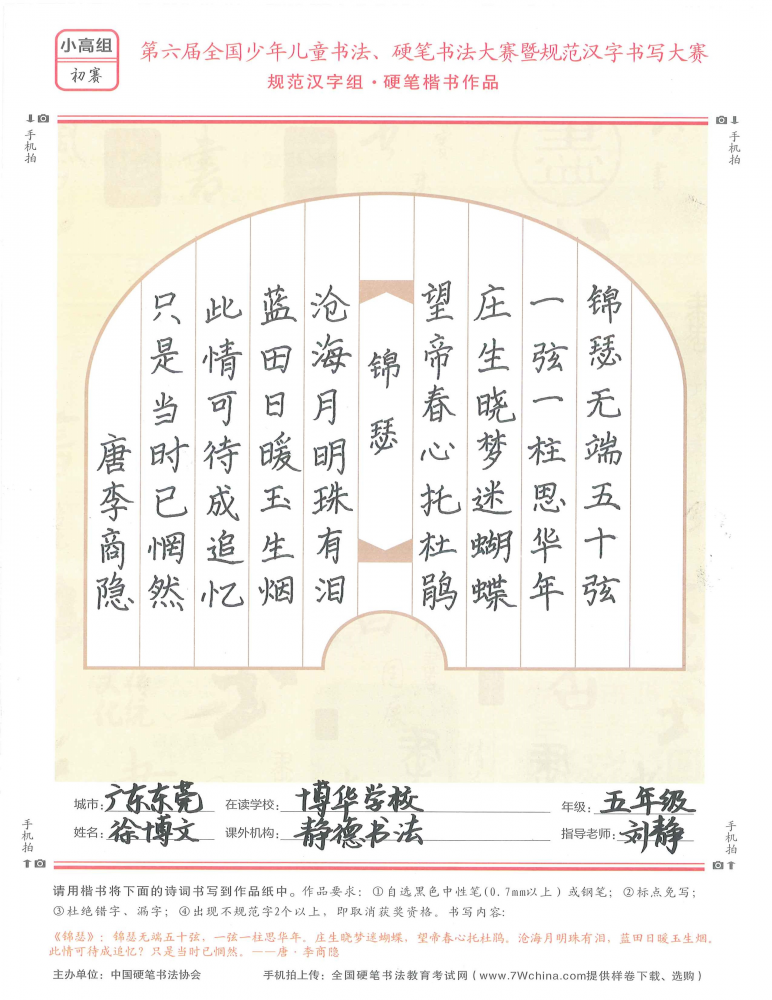 小高组
初赛
第六届全国少年儿童书法、硬笔书法大赛暨规范汉字书写大赛
规范汉字组·硬笔楷书作品
手机拍
手机拍
锦瑟无端五十弦
一弦一柱思华年
庄生晓梦迷蝴蝶
望帝春心托杜鹃
锦瑟
沧海月明珠有泪
蓝田日暖玉生烟
此情可待成追忆
只是当时已惘然
唐李商隐
城市：广东东莞 在读学校：博华学校 年级：五年级
姓名：徐博文 课外机构：静德书法 指导老师：刘静
手机拍
手机拍
请用楷书将下面的诗词书写到作品纸中。作品要求：①自选黑色中性笔(0.7mm以上）或钢笔；②标点免写；
③杜绝错字、漏字；④出现不规范字2个以上，即取消获奖资格。书写内容：
《锦瑟》：锦瑟无端五十弦，一弦一柱思华年。庄生晓梦迷蝴蝶，望帝春心托杜鹃。沧海月明珠有泪，蓝田日暖玉生烟。
此情可待成追忆？只是当时已惘然。——唐·李商隐
主办单位：中国硬笔书法协会 手机拍上传：全国硬笔书法教育考试网（www.7Wchina.com提供样卷下载、选购）